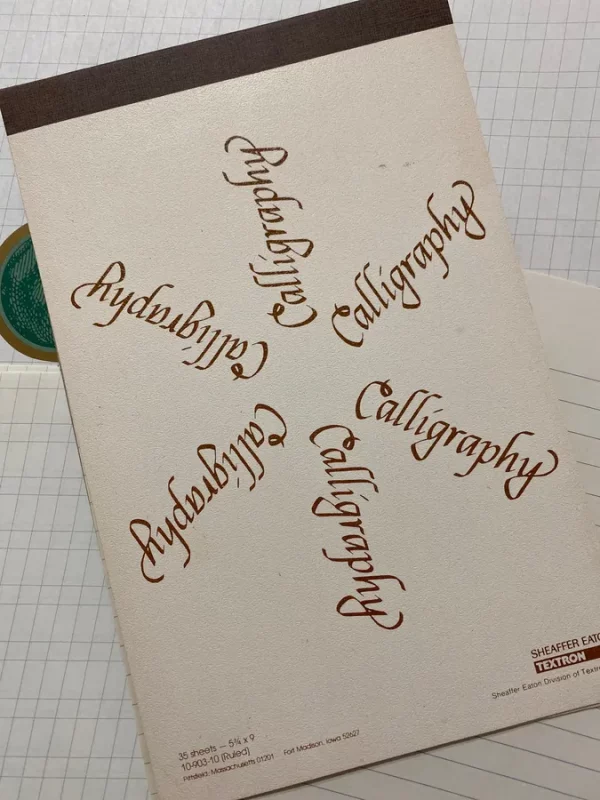 Calligraphy
Calligraphy
Calligraphy
Calligraphy
Calligraphy
Calligraphy
SHEAFFER EATON
TEXTRON
Sheaffer Eaton Division of Textr
35 sheets — 5¾ x 9
10-903-10 (Ruled)
Pittsfield, Massachusetts 01201 Fort Madison, Iowa 52627